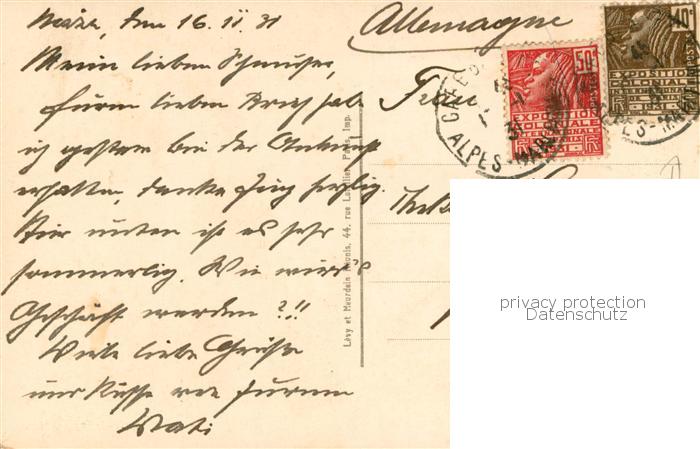 Nizza, den 16. II. 31
Mein lieben
Euren lieben Brief habe
ich gestern bei der Ankunft
erhalten, danke Euch herzlich.
Hier unten ist es sehr
sommerlich. Wie wird's
Geschäft werden?!!
Viele liebe Grüsse
und Küsse von Eurem
Vati
Lévy et Neurdein Réunis, 44, rue Letellier, Paris, Imp.
Allemagne
Frau
50c
EXPOSITION
COLONIALE
INTERNATIONALE
40c
EXPOSITION
ALPES-MARITIMES
privacy protection
Datenschutz